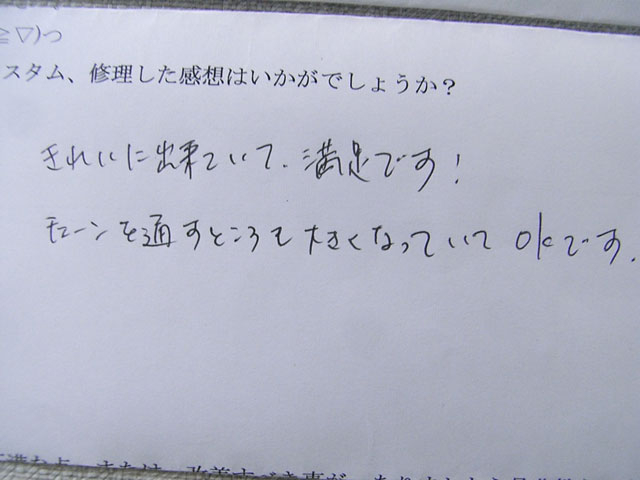 ≧▽)っ
スタム、修理した感想はいかがでしょうか？
きれいに出来ていて、満足です！
チェーンを通すところも大きくなっていてOKです.